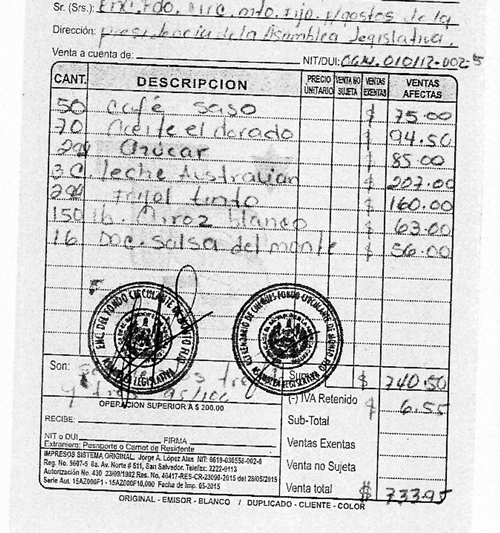 Sr. (Srs.): Enc. Fdo. Circ. mto. fijo. p/gastos de la
Dirección: presidencia de la Asamblea Legislativa.
Venta a cuenta de: NIT/DUI:
CANT. DESCRIPCION PRECIO UNITARIO VENTA NO SUJETA VENTAS EXENTAS VENTAS AFECTAS
50 café saso $ 75.00
70 Aceite el dorado $ 94.50
Azucar $ 85.00
3 C. leche Australian $ 207.00
frijol tinto $ 160.00
150 lb. Arroz blanco $ 63.00
16 Doc. salsa del monte $ 56.00
ENC. DEL FONDO CIRCULANTE DE MONTO FIJO
ASAMBLEA LEGISLATIVA
REFRENDARIO DE CHEQUES FONDO CIRCULANTE DE MONTO FIJO
ASAMBLEA LEGISLATIVA
Son: $ 740.50
y tres 95/100 (-) IVA Retenido $ 6.55
OPERACION SUPERIOR A $ 200.00
Sub-Total
RECIBE:
Ventas Exentas
NIT o DUI FIRMA
Extranjero: Pasaporte o Carnet de Residente
Venta no Sujeta
IMPRESOS SISTEMA ORIGINAL. Jorge A. López Alas NIT: 0619-030558-002-6
Reg. No. 5607-5 8a. Av. Norte # 511, San Salvador. Telefax: 2222-9113
Autorización No. 430 23/09/1992 Res. No. 40417-RES-CR-23090-2015 del 28/05/2015
Serie Aut. 15AZ000F1 - 15AZ000F10,000 Fecha de Imp. 05-2015
Venta total $ 733.95
ORIGINAL - EMISOR - BLANCO / DUPLICADO - CLIENTE - COLOR